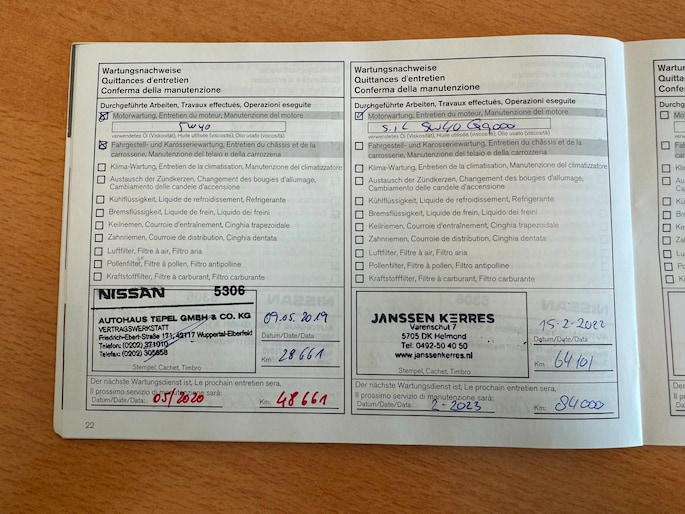 Wartungsnachweise
Quittances d'entretien
Conferma della manutenzione
Durchgeführte Arbeiten, Travaux effectués, Operazioni eseguite
Motorwartung, Entretien du moteur, Manutenzione del motore
5W40
verwendetes Öl (Viskosität), Huile utilisée (viscosité), Olio usato (viscosità)
Fahrgestell- und Karosseriewartung, Entretien du châssis et de la
carrosserie, Manutenzione del telaio e della carrozzeria
Klima-Wartung, Entretien de la climatisation, Manutenzione del climatizzatore
Austausch der Zündkerzen, Changement des bougies d'allumage,
Cambiamento delle candele d'accensione
Kühlflüssigkeit, Liquide de refroidissement, Refrigerante
Bremsflüssigkeit, Liquide de frein, Liquido dei freini
Keilriemen, Courroie d'entraînement, Cinghia trapezoidale
Zahnriemen, Courroie de distribution, Cinghia dentata
Luftfilter, Filtre à air, Filtro aria
Pollenfilter, Filtre à pollen, Filtro antipolline
Kraftstofffilter, Filtre à carburant, Filtro carburante
NISSAN 5306
AUTOHAUS TEPEL GMBH & CO. KG
VERTRAGSWERKSTATT
Friedrich-Ebert-Straße 171, 42117 Wuppertal-Elberfeld
Telefon: (0202) 371010
Telefax: (0202) 305858
09.05.2019
Datum/Date/Data:
Km: 28661
Stempel, Cachet, Timbro
Der nächste Wartungsdienst ist, Le prochain entretien sera,
Il prossimo servizio di manutenzione sarà:
Datum/Date/Data: 05/2020 Km: 48661
22
Wartungsnachweise
Quittances d'entretien
Conferma della manutenzione
Durchgeführte Arbeiten, Travaux effectués, Operazioni eseguite
Motorwartung, Entretien du moteur, Manutenzione del motore
5W40
verwendetes Öl (Viskosität), Huile utilisée (viscosité), Olio usato (viscosità)
Fahrgestell- und Karosseriewartung, Entretien du châssis et de la
carrosserie, Manutenzione del telaio e della carrozzeria
Klima-Wartung, Entretien de la climatisation, Manutenzione del climatizzatore
Austausch der Zündkerzen, Changement des bougies d'allumage,
Cambiamento delle candele d'accensione
Kühlflüssigkeit, Liquide de refroidissement, Refrigerante
Bremsflüssigkeit, Liquide de frein, Liquido dei freini
Keilriemen, Courroie d'entraînement, Cinghia trapezoidale
Zahnriemen, Courroie de distribution, Cinghia dentata
Luftfilter, Filtre à air, Filtro aria
Pollenfilter, Filtre à pollen, Filtro antipolline
Kraftstofffilter, Filtre à carburant, Filtro carburante
JANSSEN KERRES
Varenschut 7
5705 DK Helmond
Tel: 0492-50 40 50
www.janssenkerres.nl
15-2-2022
Datum/Date/Data:
Km: 64101
Stempel, Cachet, Timbro
Der nächste Wartungsdienst ist, Le prochain entretien sera,
Il prossimo servizio di manutenzione sarà:
Datum/Date/Data: 2-2023 Km: 84000